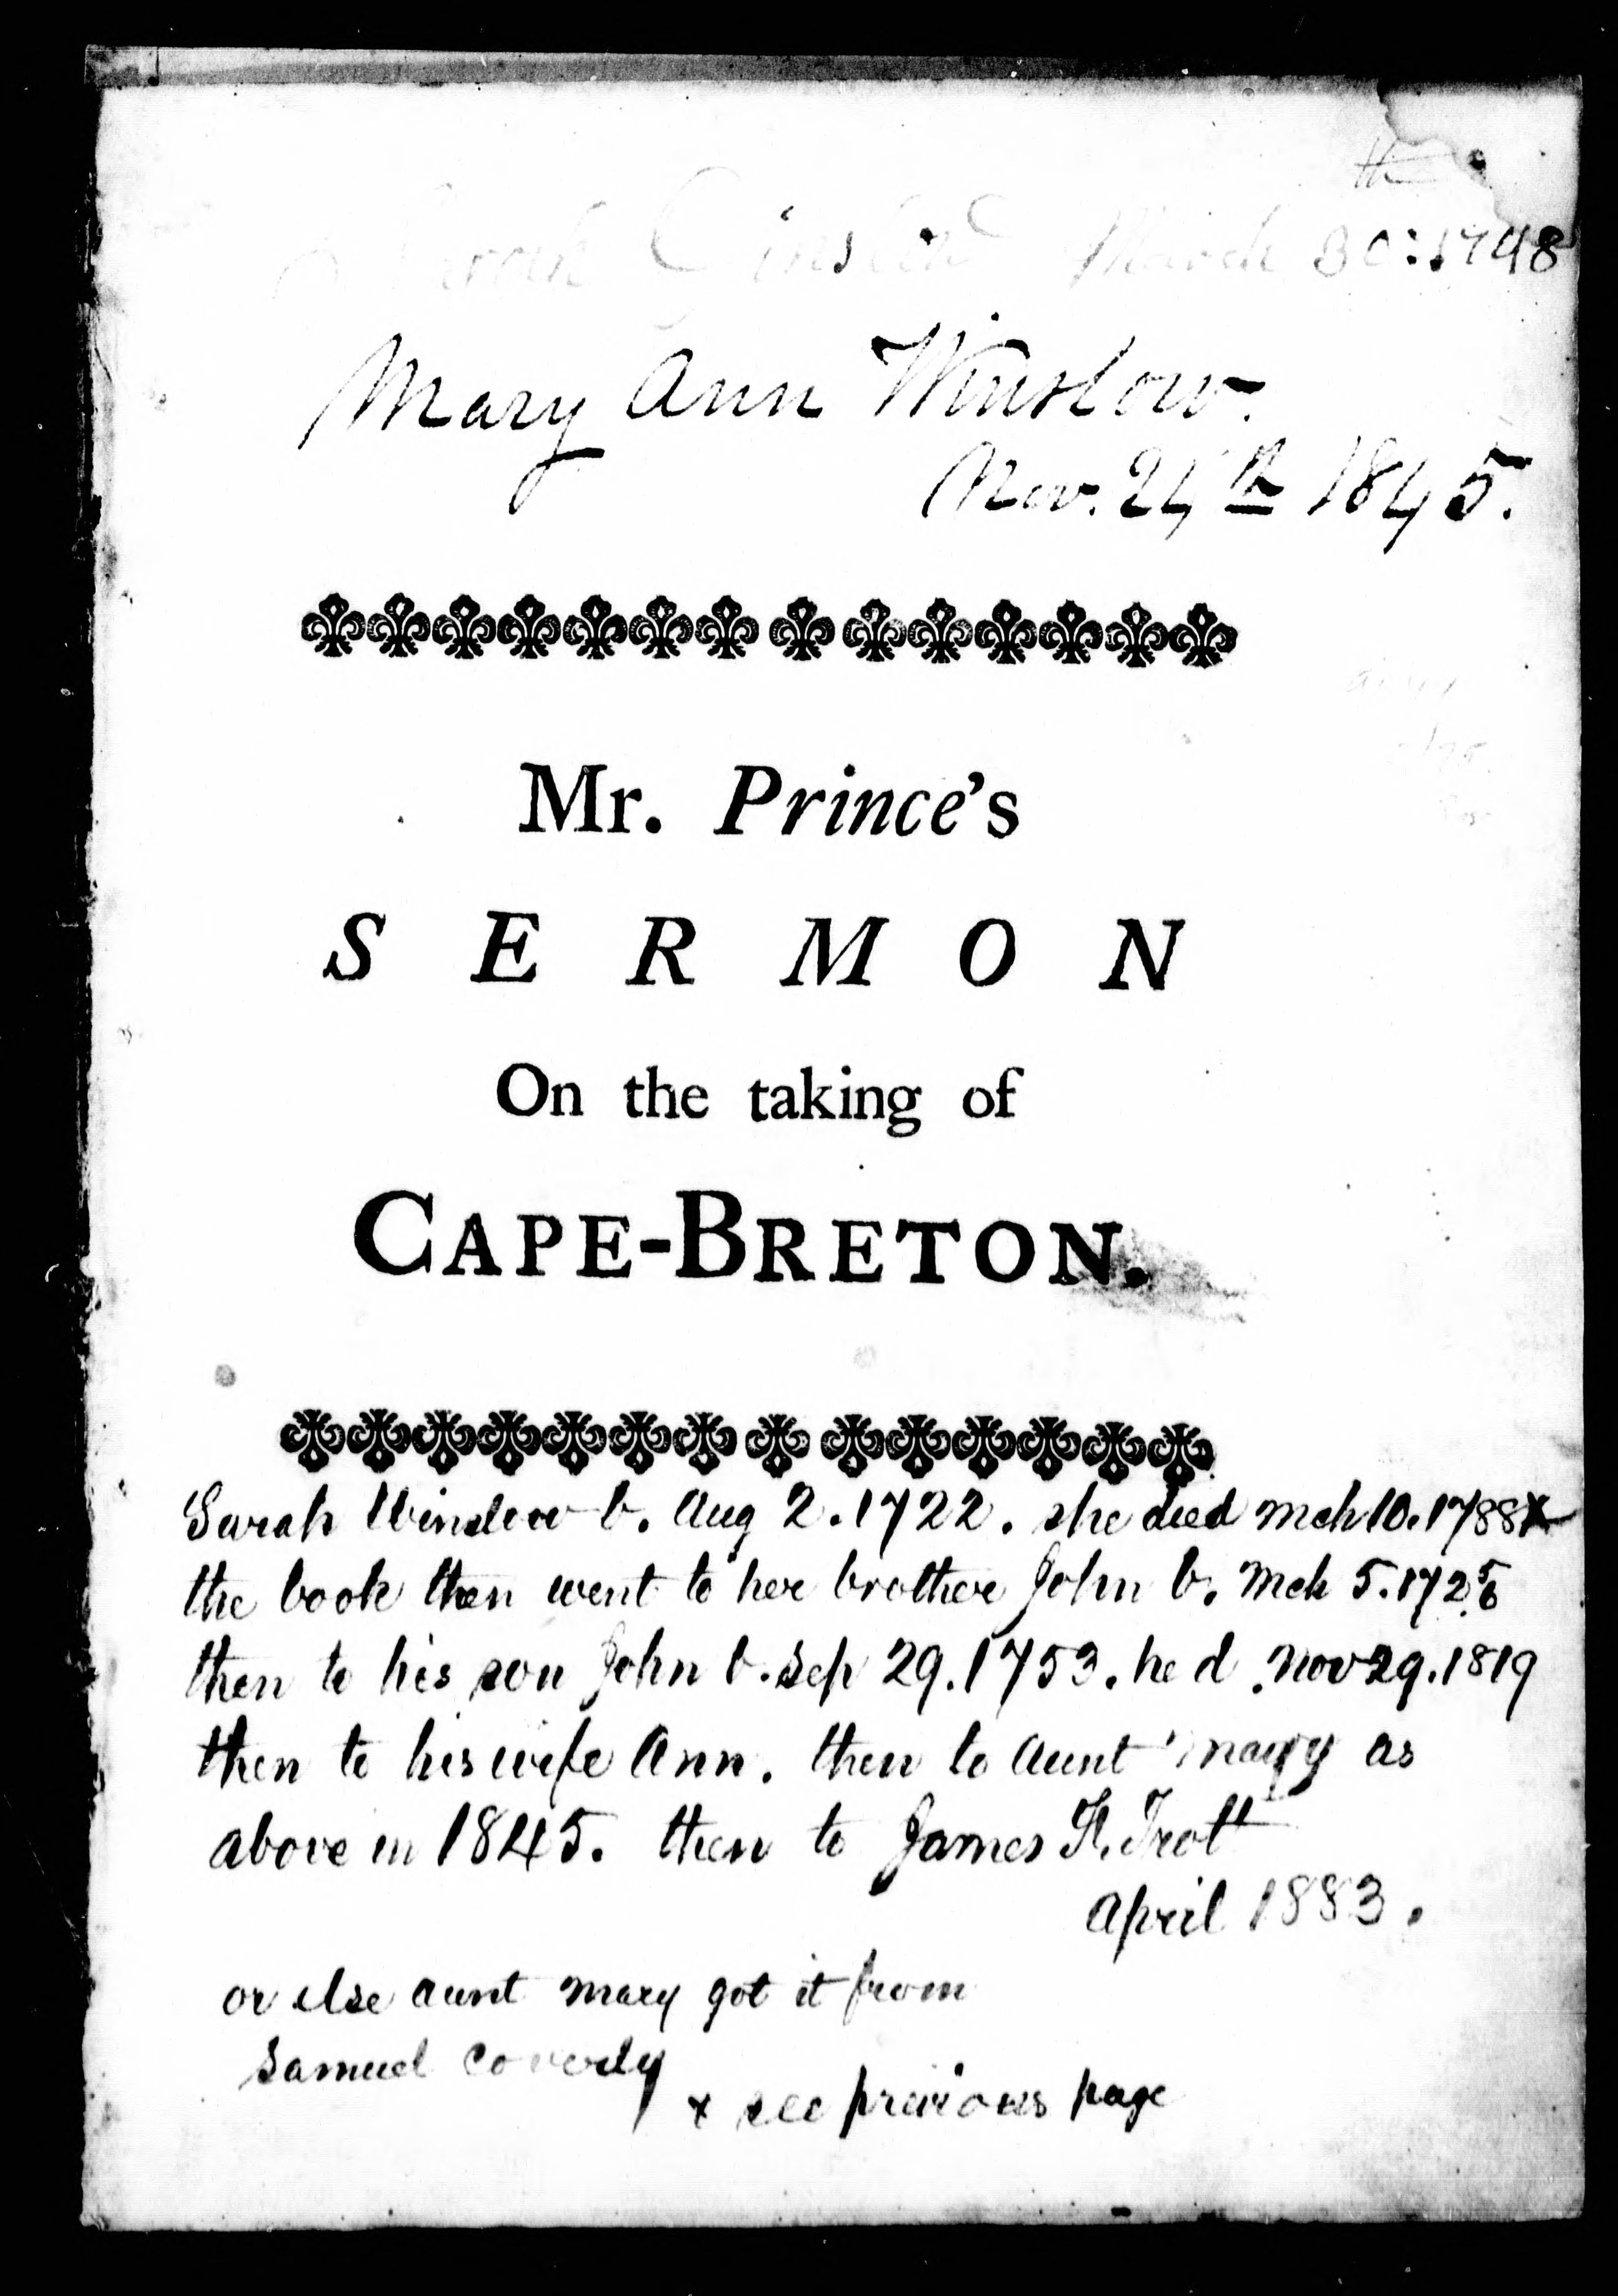 th
March 30: 1748
Mary Ann Winslow.
Nov. 24th 1845.
Mr. Prince's
SERMON
On the taking of
CAPE-BRETON.
Sarah Winslow b. Aug 2. 1722. she died Mch 10. 1788 x
the book then went to her brother John b. Mch 5. 172 5/6
then to his son John b. Sep 29. 1753. he d. Nov 29. 1819
then to his wife Ann. then to Aunt Mary as
above in 1845. then to James H. Trott
April 1883.
or else aunt Mary got it from
Samuel Coverly
x see previous page